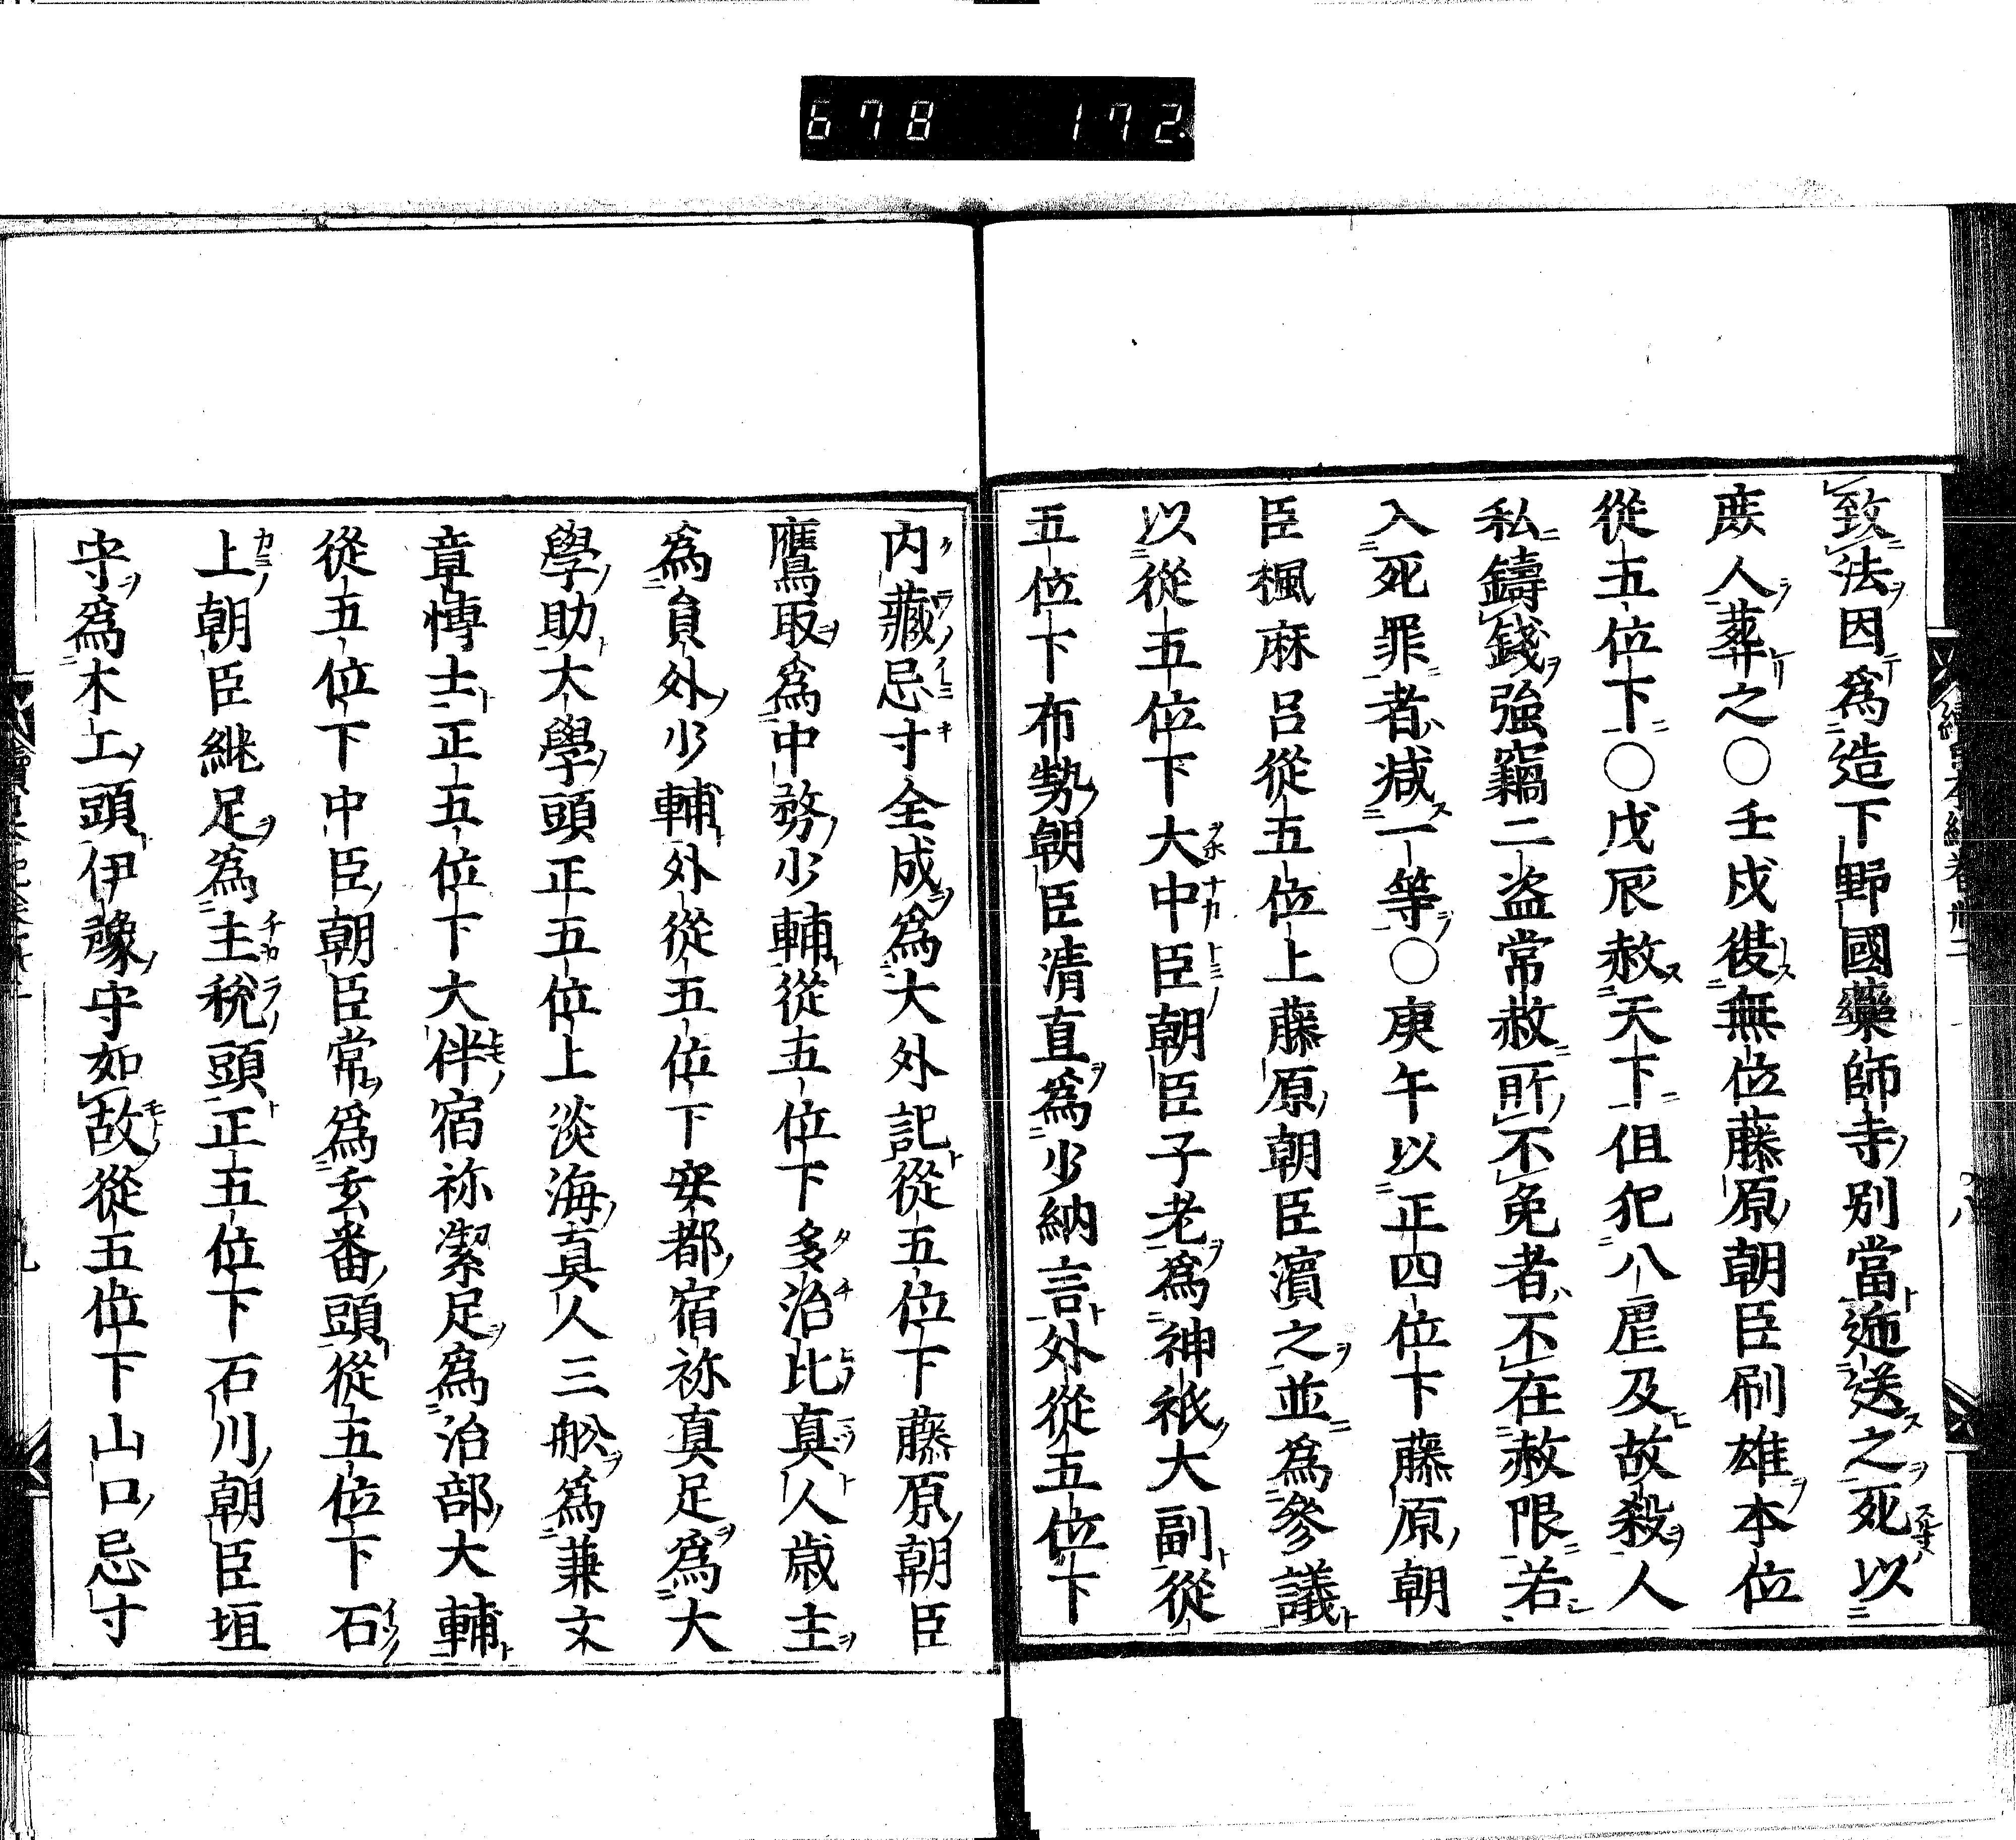 678 172
致法因爲造下野國藥師寺別當逓送之死以
庶人葬之○壬戌復無位藤原朝臣刷雄本位
從五位下○戊辰赦天下但犯八虐及故殺人
私鑄錢強竊二盗常赦所不免者不在赦限若
入死罪者减一等○庚午以正四位下藤原朝
臣楓麻呂從五位上藤原朝臣濵之並爲參議
以從五位下大中臣朝臣子老爲神祇大副從
五位下布勢朝臣清直爲少納言外從五位下
内藏忌寸全成爲大外記從五位下藤原朝臣
鷹取爲中務少輔從五位下多治比真人歳主
爲貟外少輔外從五位下安都宿祢真足爲大
學助大學頭正五位上淡海真人三舩爲兼文
章博士正五位下大伴宿祢潔足爲治部大輔
從五位下中臣朝臣常爲玄番頭從五位下石
上朝臣継足爲主税頭正五位下石川朝臣垣
守爲木工頭伊豫守如故從五位下山口忌寸